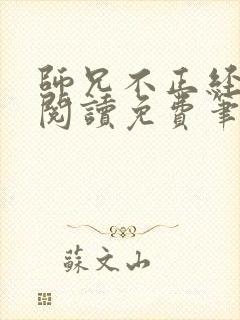 師兄不正経
閱讀免費筆
蘇文山